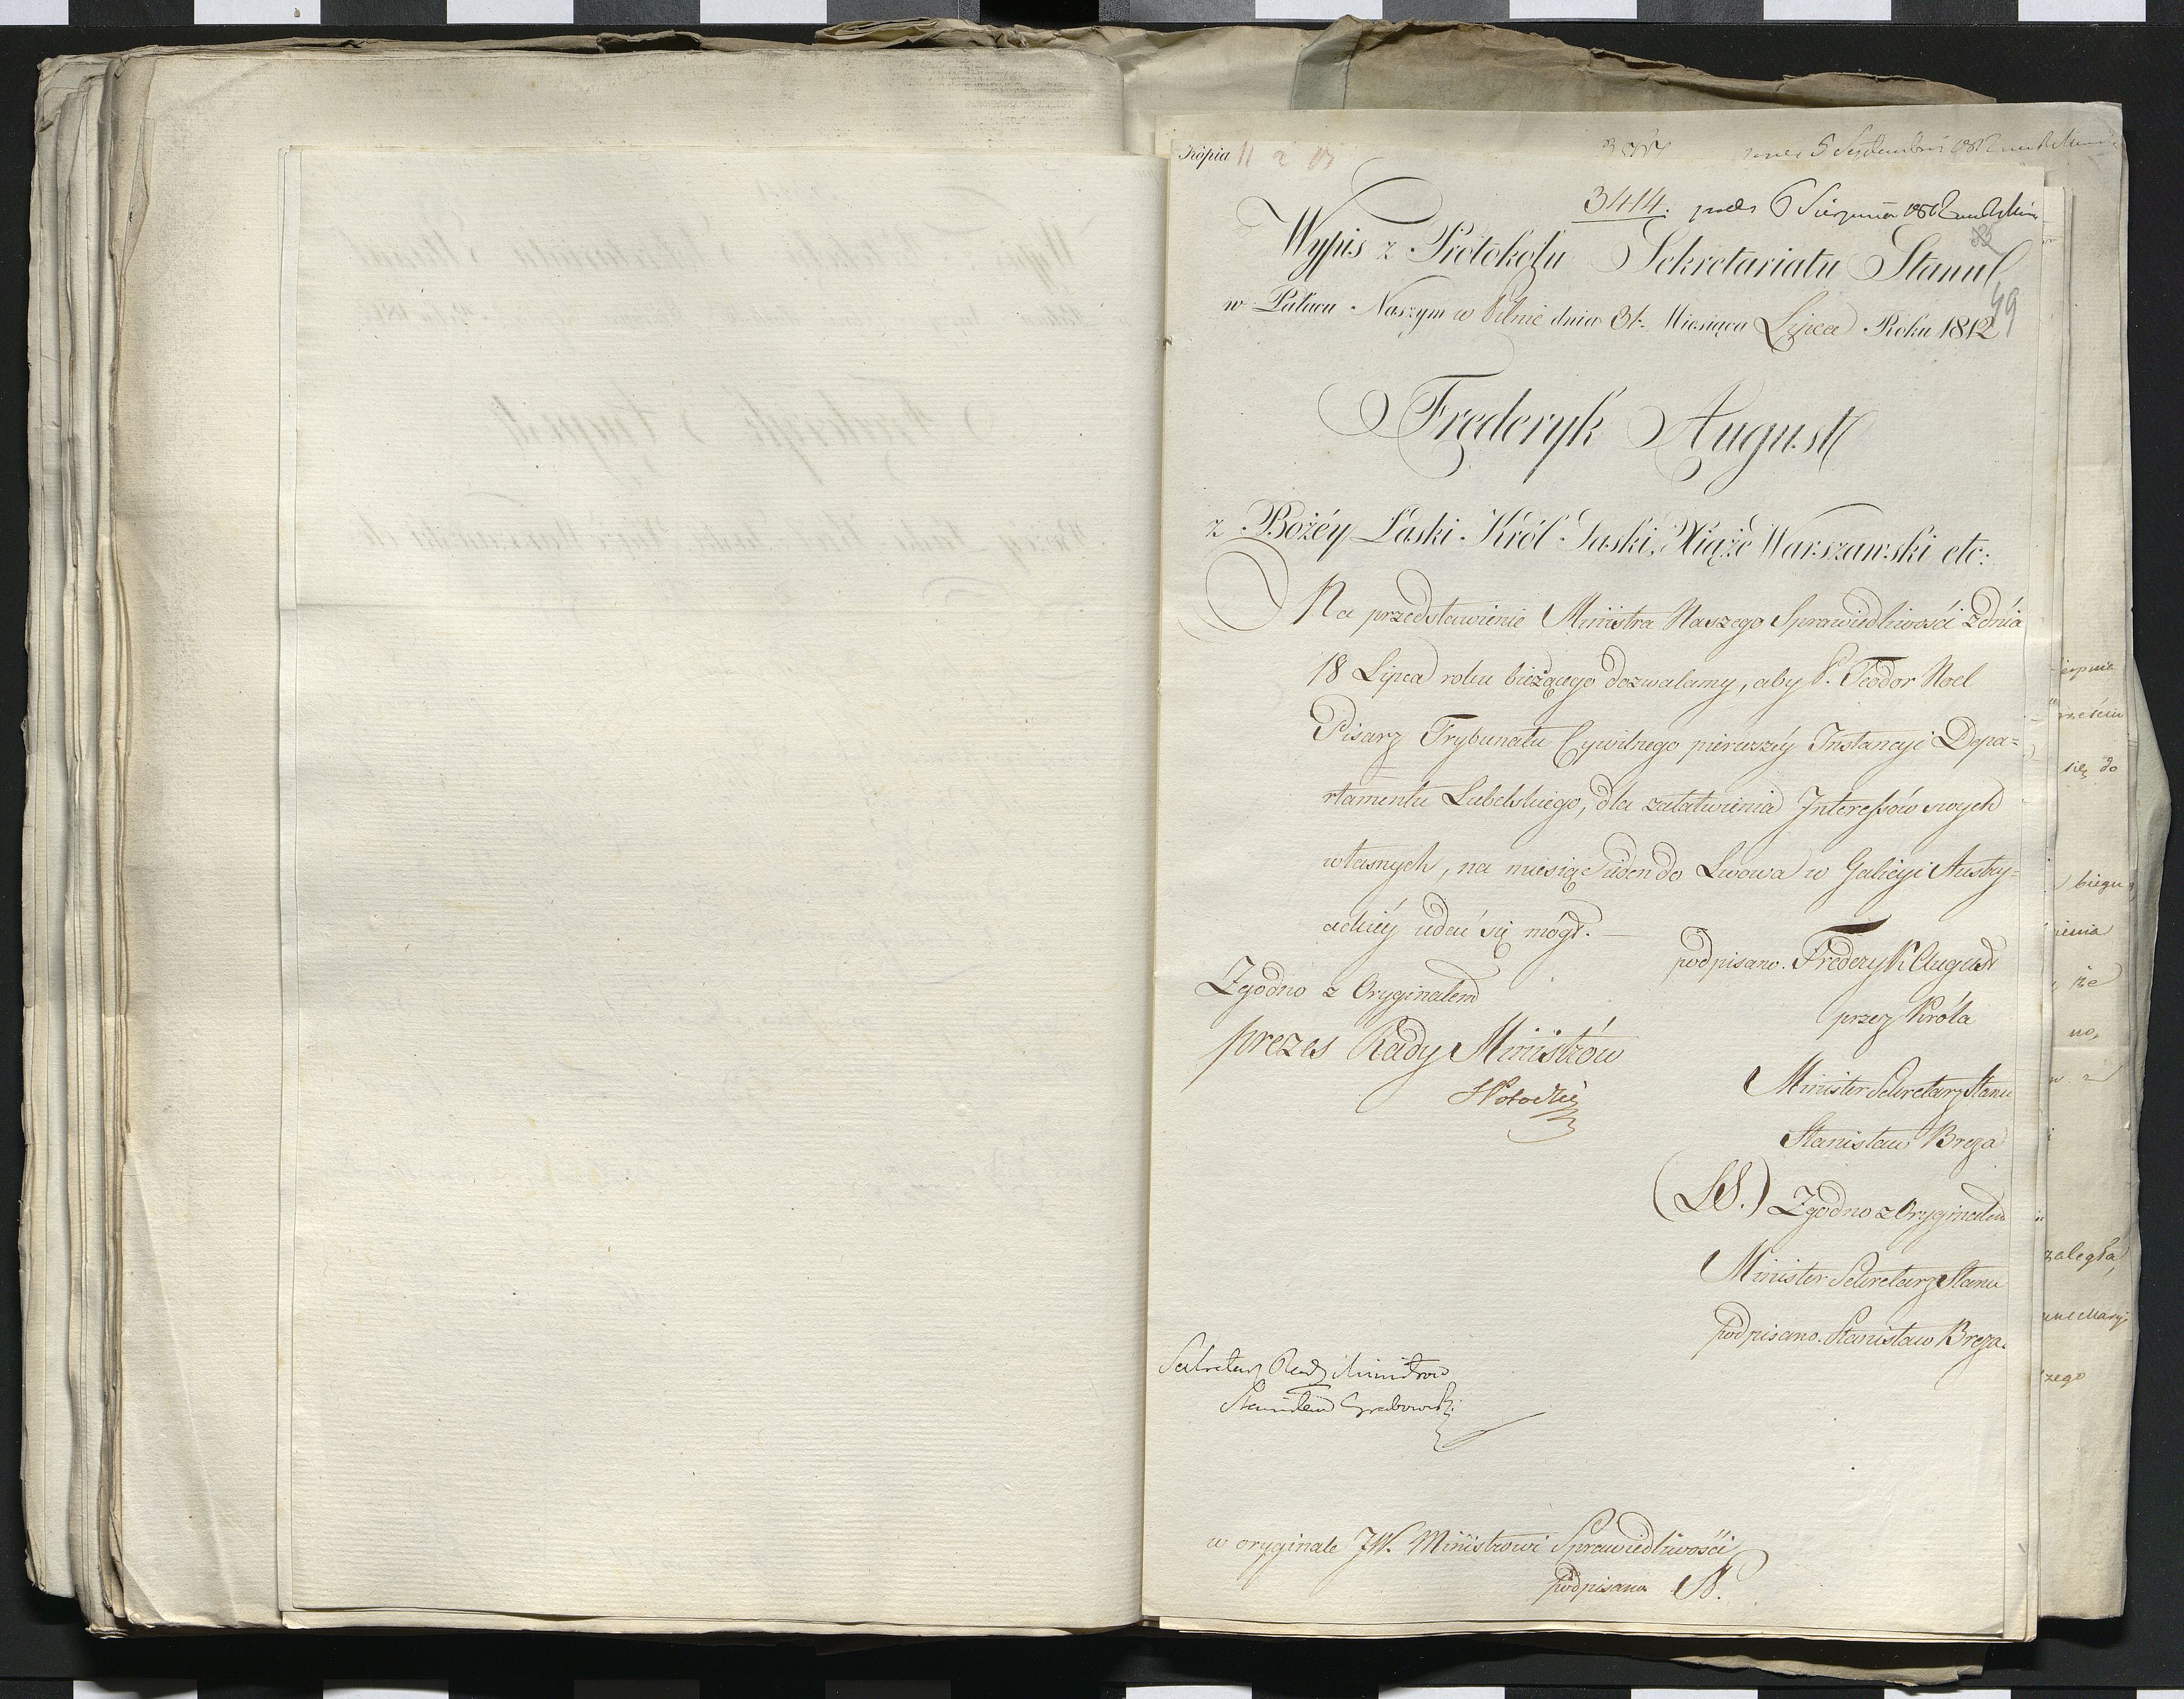 Kopia
3414. 6 Sierpnia 1812
Wypis z Protokołu Sekretariatu Stanu
49
w Pałacu Naszym w Pilnic dnia 31. Miesiąca Lipca Roku 1812
Fręderyk August
z Bożéy Łaski Król Saski, Xiąże Warszawski etc:
Na przedstawienie Ministra Naszego Sprawiedliwości z dnia
18 Lipca roku bieżącego dozwalamy, aby P. Teodor Noel
Pisarz Trybunału Cywilnego pierwszéy Instancyi Depa=
rtamentu Lubelskiego, dla załatwienia Interessów swych
własnych, na miesiąc ieden do Lwowa w Galicyi Austry=
ackiéy udać się mógł.
podpisano. Frederyk August
Zgodno z Oryginałem
przez Króla
prezes Rady Ministrów
Minister Sekretarz Stanu
SPotocki
Stanisław Breza
(LS.) Zgodno z Oryginałem
Minister Sekretarz Stanu
podpisano. Stanisław Breza.
Sekretarz Rady Ministrow
Stanisław Grabowski
w oryginale JW. Ministrowi Sprawiedliwości
podpisano
się do
biegu
że
no,
zaległa,